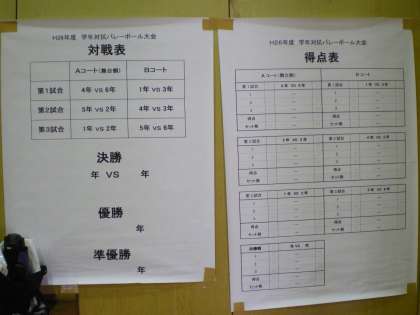 H26年度 学年対抗バレーボール大会
対戦表
Aコート(舞台側) Bコート
第1試合 4年 VS 6年 1年 VS 3年
第2試合 5年 VS 2年 4年 VS 3年
第3試合 1年 VS 2年 5年 VS 6年
決勝
年 VS 年
優勝
年
準優勝
年
H26年度 学年対抗バレーボール大会
得点表
Aコート(舞台側) Bコート
第1試合 4年 VS 6年 第1試合 1年 VS 3年
1 1
2 2
3 3
得点 得点
セット数 セット数
第2試合 5年 VS 2年 第2試合 4年 VS 3年
1 1
2 2
3 3
得点 得点
セット数 セット数
第3試合 1年 VS 2年 第3試合 5年 VS 6年
1 1
2 2
3 3
得点 得点
セット数 セット数
決勝戦 年 VS 年
1
2
3
得点
セット数